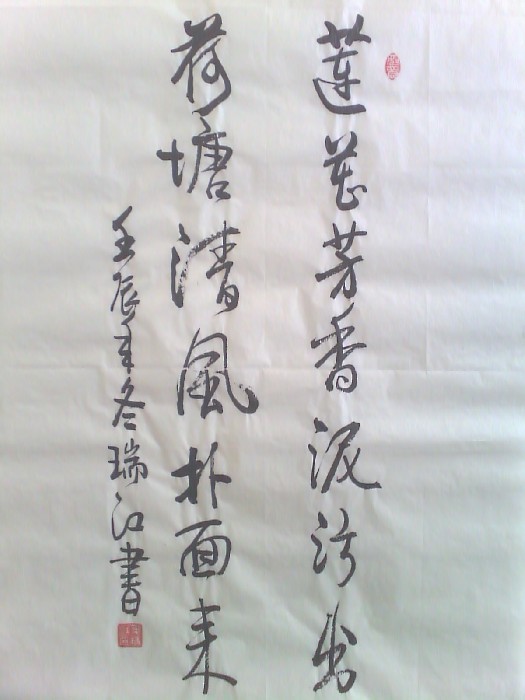 莲花芳香泥污出
荷塘清風扑面来
壬辰年冬瑞江書